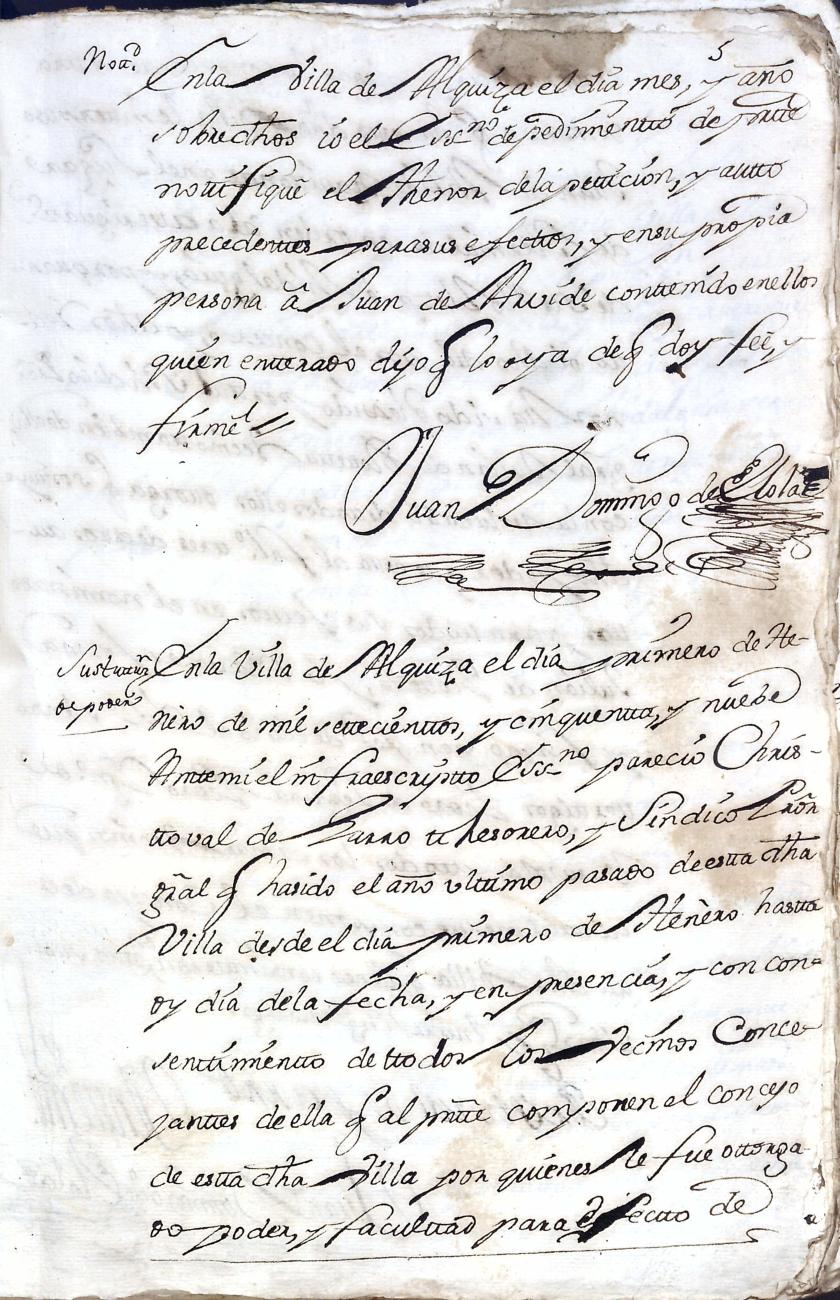 5
Nott.ᵒⁿ Enla Villa de Alquiza el dia mes, y año
sobredhos io el Essᶜⁿᵒ de pedimentto de pntte
nottifiquè el thenor dela petticion, y autto
precedenttes para sus efecttos, y en su propia
persona â Juan de Arvide conttenido enellos
quien entterado dijo q̃ lo oya de q̃ doy feè, y
firmè
Juan Domingo de Elola
Sustituz.ⁿ
de poder
Enla Villa de Alquiza el dia primero de He-
nero de mil settecienttos, y cinquentta, y nuebe
Antte mi el infraescriptto Essⁿᵒ pareciò Chris-
ttoval de Yarro tthesorero, y Sindico Pror
grãl q̃ hasido el año ulttimo pasado de estta dha
Villa desde el dia primero de Henero hastta
oy dia dela fecha, y en presencia, y con con=
senttimientto de ttodos los Vecinos Conce-
janttes de ella q̃ al pntte componen el concejo
de estta dha Villa por quienes le fue ottorga-
do poder, y facultad para efectto de